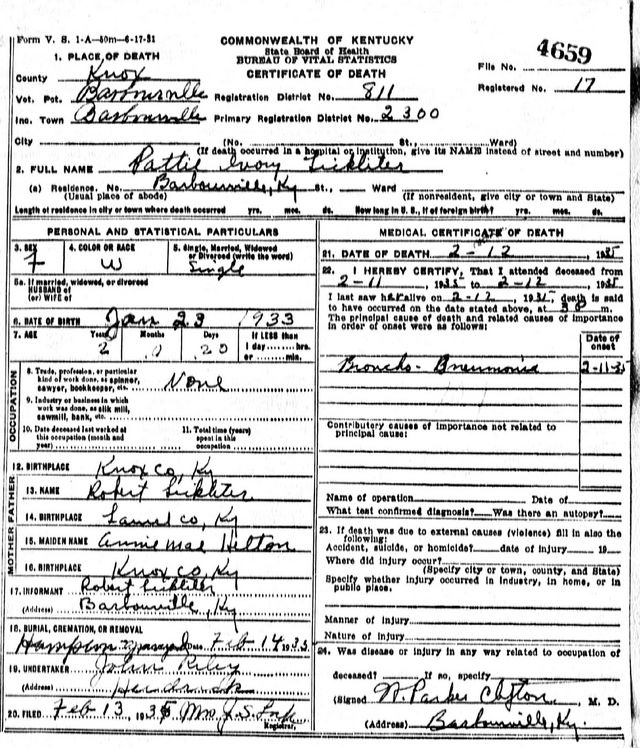 Form V. S. 1-A—50m—6-17-31
COMMONWEALTH OF KENTUCKY
State Board of Health
BUREAU OF VITAL STATISTICS
CERTIFICATE OF DEATH
File No. 4659
Registered No. 17
1. PLACE OF DEATH
County Knox
Vot. Pct. Barbourville Registration District No. 811
Inc. Town Barbourville Primary Registration District No. 2300
City (No. St., Ward)
(If death occurred in a hospital or institution, give its NAME instead of street and number)
2. FULL NAME Pattie Ivory Lickliter
(a) Residence. No. Barbourville, Ky St., Ward
(Usual place of abode) (If nonresident, give city or town and State)
Length of residence in city or town where death occurred yrs. mos. ds. How long in U. S., if of foreign birth? yrs. mos. ds.
PERSONAL AND STATISTICAL PARTICULARS
3. SEX F
4. COLOR OR RACE W
5. Single, Married, Widowed or Divorced (write the word) Single
5a. If married, widowed, or divorced
HUSBAND of
(or) WIFE of
6. DATE OF BIRTH Jan 23 1933
7. AGE Years 2 Months 0 Days 20 If LESS than
1 day hrs.
or min.
OCCUPATION
8. Trade, profession, or particular
kind of work done, as spinner,
sawyer, bookkeeper, etc. None
9. Industry or business in which
work was done, as silk mill,
sawmill, bank, etc.
10. Date deceased last worked at
this occupation (month and
year)
11. Total time (years)
spent in this
occupation
12. BIRTHPLACE Knox Co, Ky
FATHER
13. NAME Robert Lickliter
14. BIRTHPLACE Laurel Co, Ky
MOTHER
15. MAIDEN NAME Annie Mae Helton
16. BIRTHPLACE Knox Co, Ky
17. INFORMANT Robert Lickliter
(Address) Barbourville, Ky
18. BURIAL, CREMATION, OR REMOVAL
Hampton Date Feb 14 1935
19. UNDERTAKER John Riley
(Address)
20. FILED Feb 13, 1935 Mrs J. S.
Registrar.
MEDICAL CERTIFICATE OF DEATH
21. DATE OF DEATH 2-12, 1935
22. I HEREBY CERTIFY, That I attended deceased from
2-11, 1935 to 2-12, 1935
I last saw her alive on 2-12, 1935, death is said
to have occurred on the date stated above, at m.
The principal cause of death and related causes of importance
in order of onset were as follows:
Date of
onset
Broncho-Pneumonia 2-11-35
Contributory causes of importance not related to
principal cause:
Name of operation Date of
What test confirmed diagnosis? Was there an autopsy?
23. If death was due to external causes (violence) fill in also the
following:
Accident, suicide, or homicide? date of injury 19
Where did injury occur?
(Specify city or town, county, and State)
Specify whether injury occurred in industry, in home, or in
public place.
Manner of injury
Nature of injury
24. Was disease or injury in any way related to occupation of
deceased? If no, specify
(Signed W. Parker Clifton, M. D.
(Address) Barbourville, Ky.